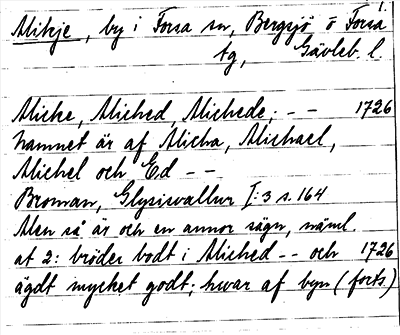 Mikje, by i Forsa sn, Bergsjö o Forsa
tg, Gävleb. l.
Miche, Miched, Michede; - - 1726
hamnet är af Micha, Michael,
Michel och Ed - -
Broman, Glysisvallur I:3 s. 164
Men så är och en annor sägn, näml.
at 2: bröder bodt i Miched - - och 1726
ägdt mycket godt; hwar af byn (forts)